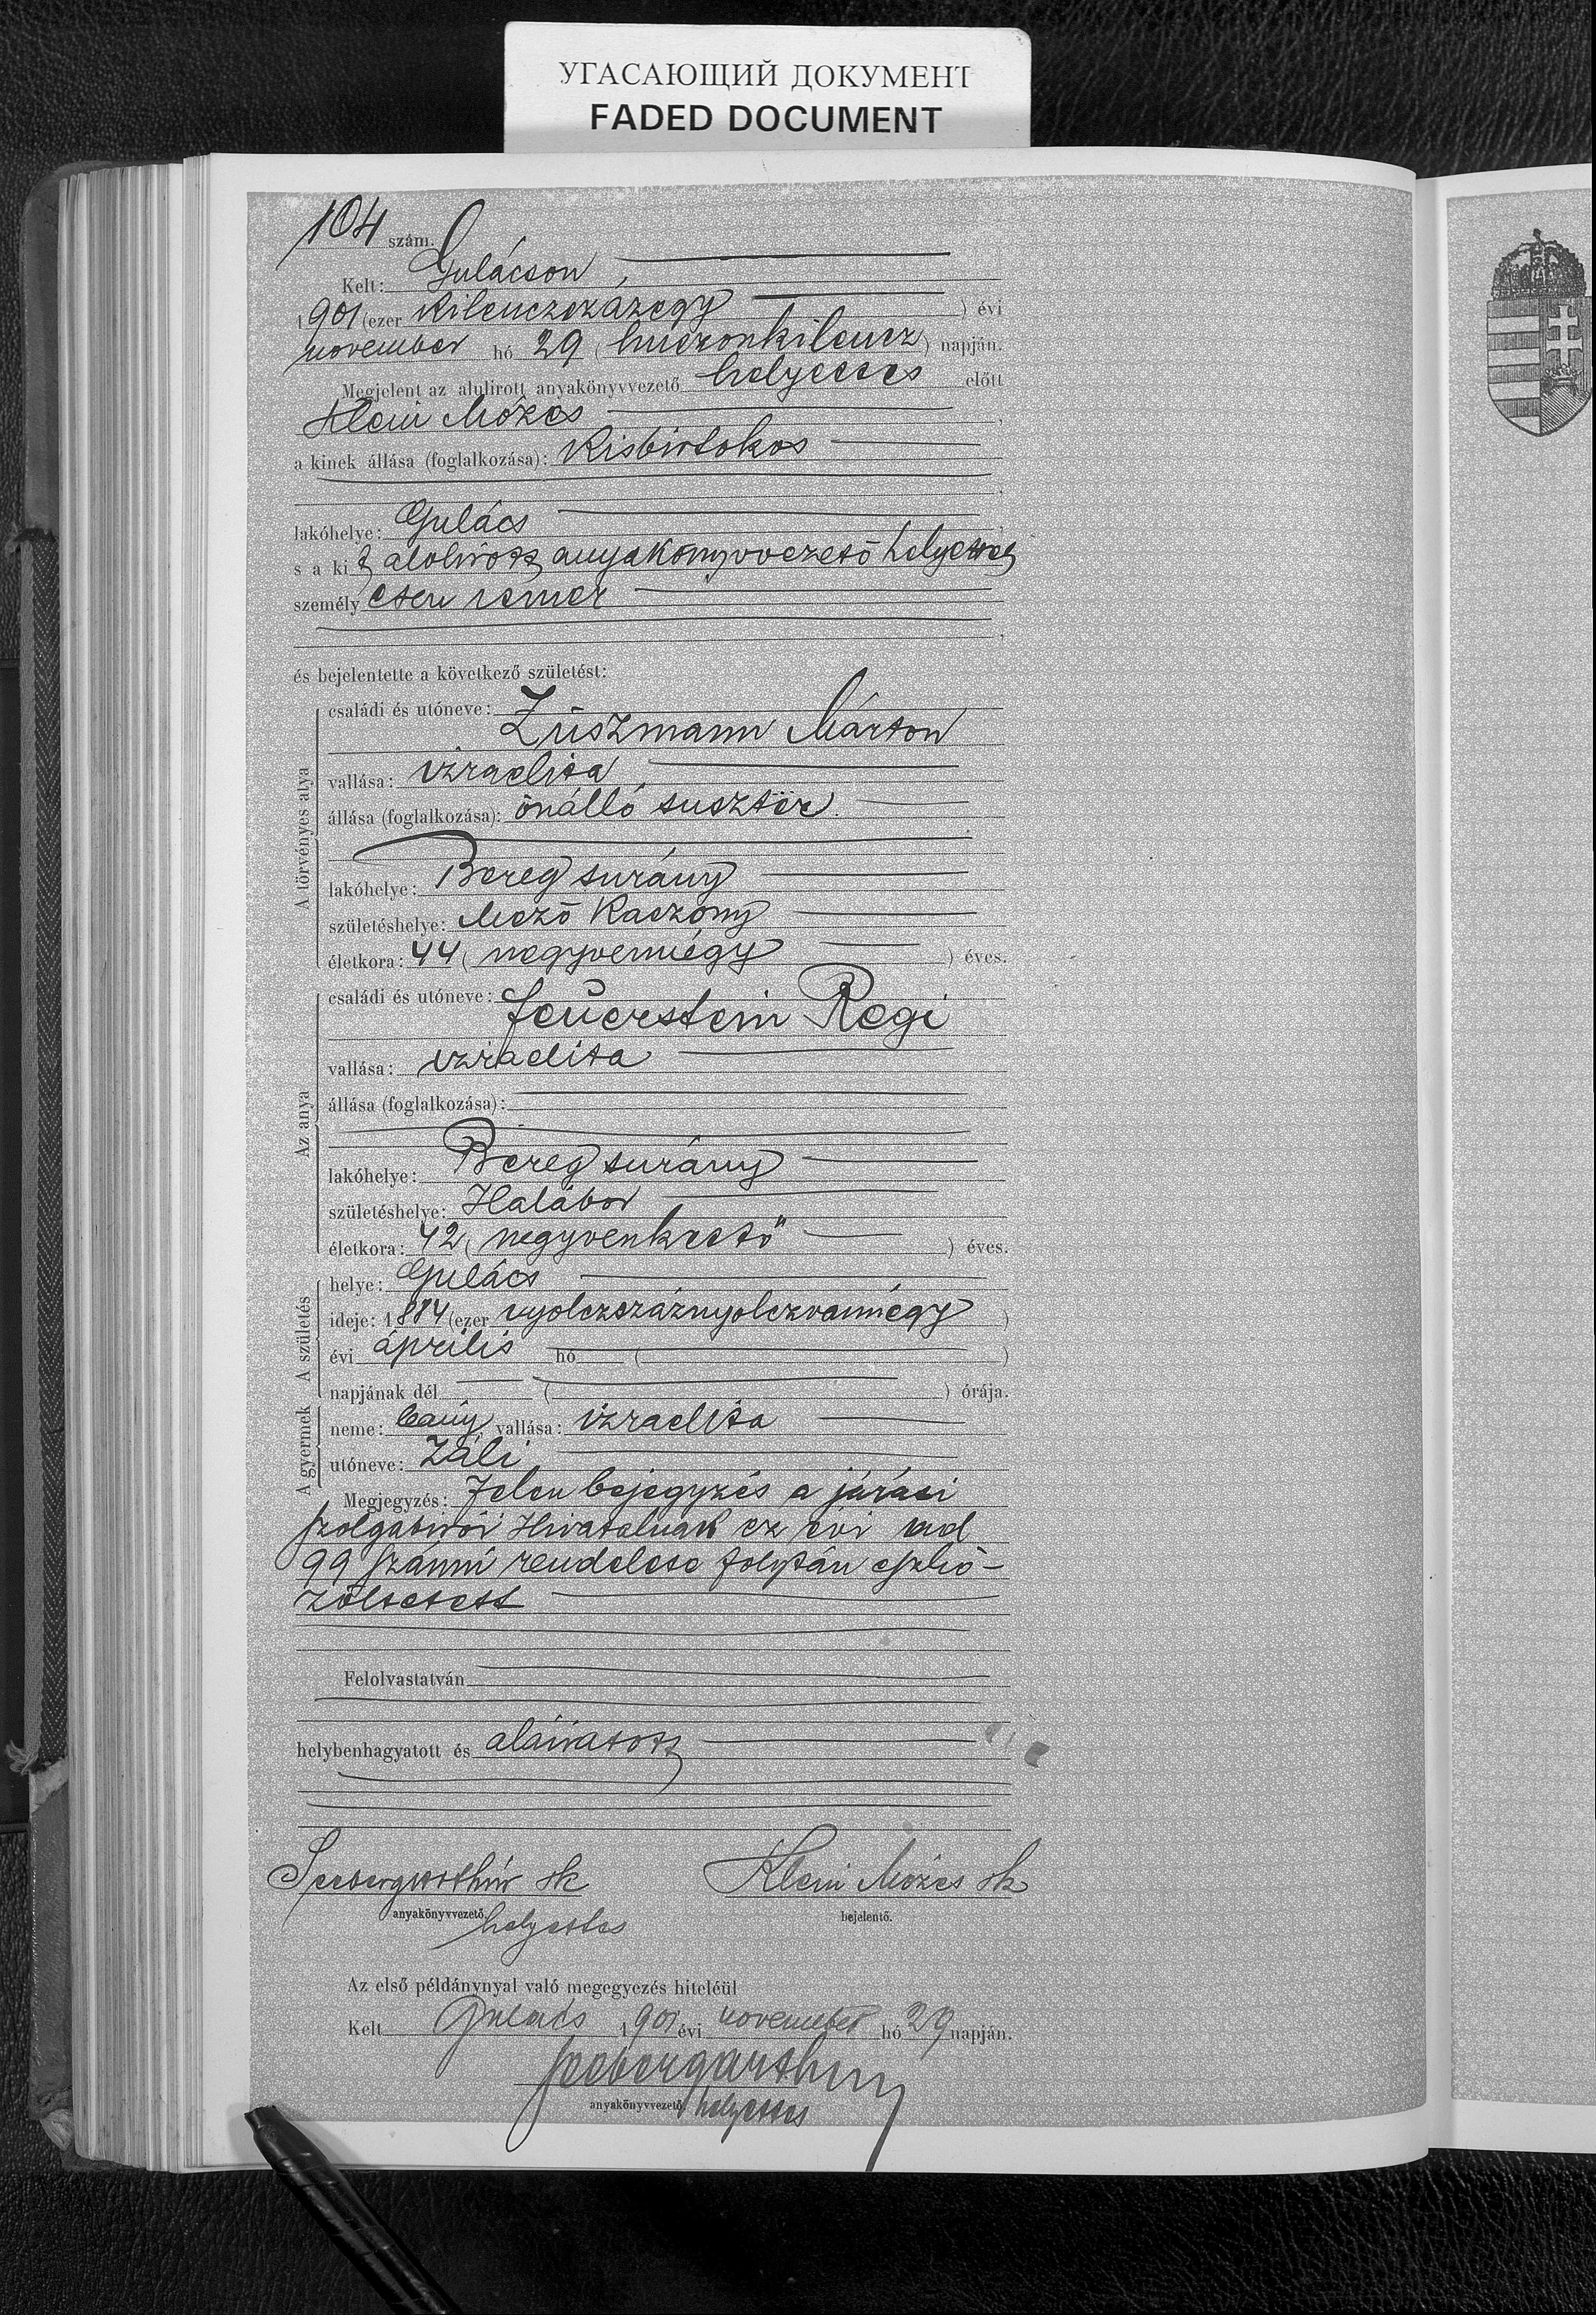 УГАСАЮЩИЙ ДОКУМЕНТ
FADED DOCUMENT
104 szám.
Kelt: Gulácson,
1901 (ezer kilenczszázegy) évi
november hó 29 (huszonkilencz) napján.
Megjelent az alulirott anyakönyvvezető helyettes előtt
Klein Mózes,
a kinek állása (foglalkozása): kisbirtokos
lakóhelye: Gulács
s a kit alolirott anyakönyvvezető helyettes
személyesen ismer
és bejelentette a következő születést:
A törvényes atya
családi és utóneve:
Züszmann Márton
vallása: izraelita
állása (foglalkozása): önálló suszter
lakóhelye: Bereg surány
születéshelye: Mező Kaszony
életkora: 44 (negyvennégy) éves.
Az anya
családi és utóneve:
feuerstein Regi
vallása: izraelita
állása (foglalkozása):
lakóhelye: Bereg surány
születéshelye: Halábor
életkora: 42 (negyvenkettő) éves.
A születés
helye: Gulács
ideje: 1884 (ezer nyolczszáznyolczvannégy)
évi április hó ( )
napjának dél ( ) órája.
A gyermek
neme: leány, vallása: izraelita
utóneve: Záli
Megjegyzés: Jelen bejegyzés a járási
szolgabirói Hivatalnak ez évi
99 számú rendelese folytán eszkö-
zöltetett
Felolvastatván
helybenhagyatott és aláiratott
sk Klein Mózes sk
anyakönyvvezető helyettes bejelentő.
Az első példánynyal való megegyezés hiteléül
Kelt Gulács 1901 évi november hó 29 napján.
anyakönyvvezető helyettes